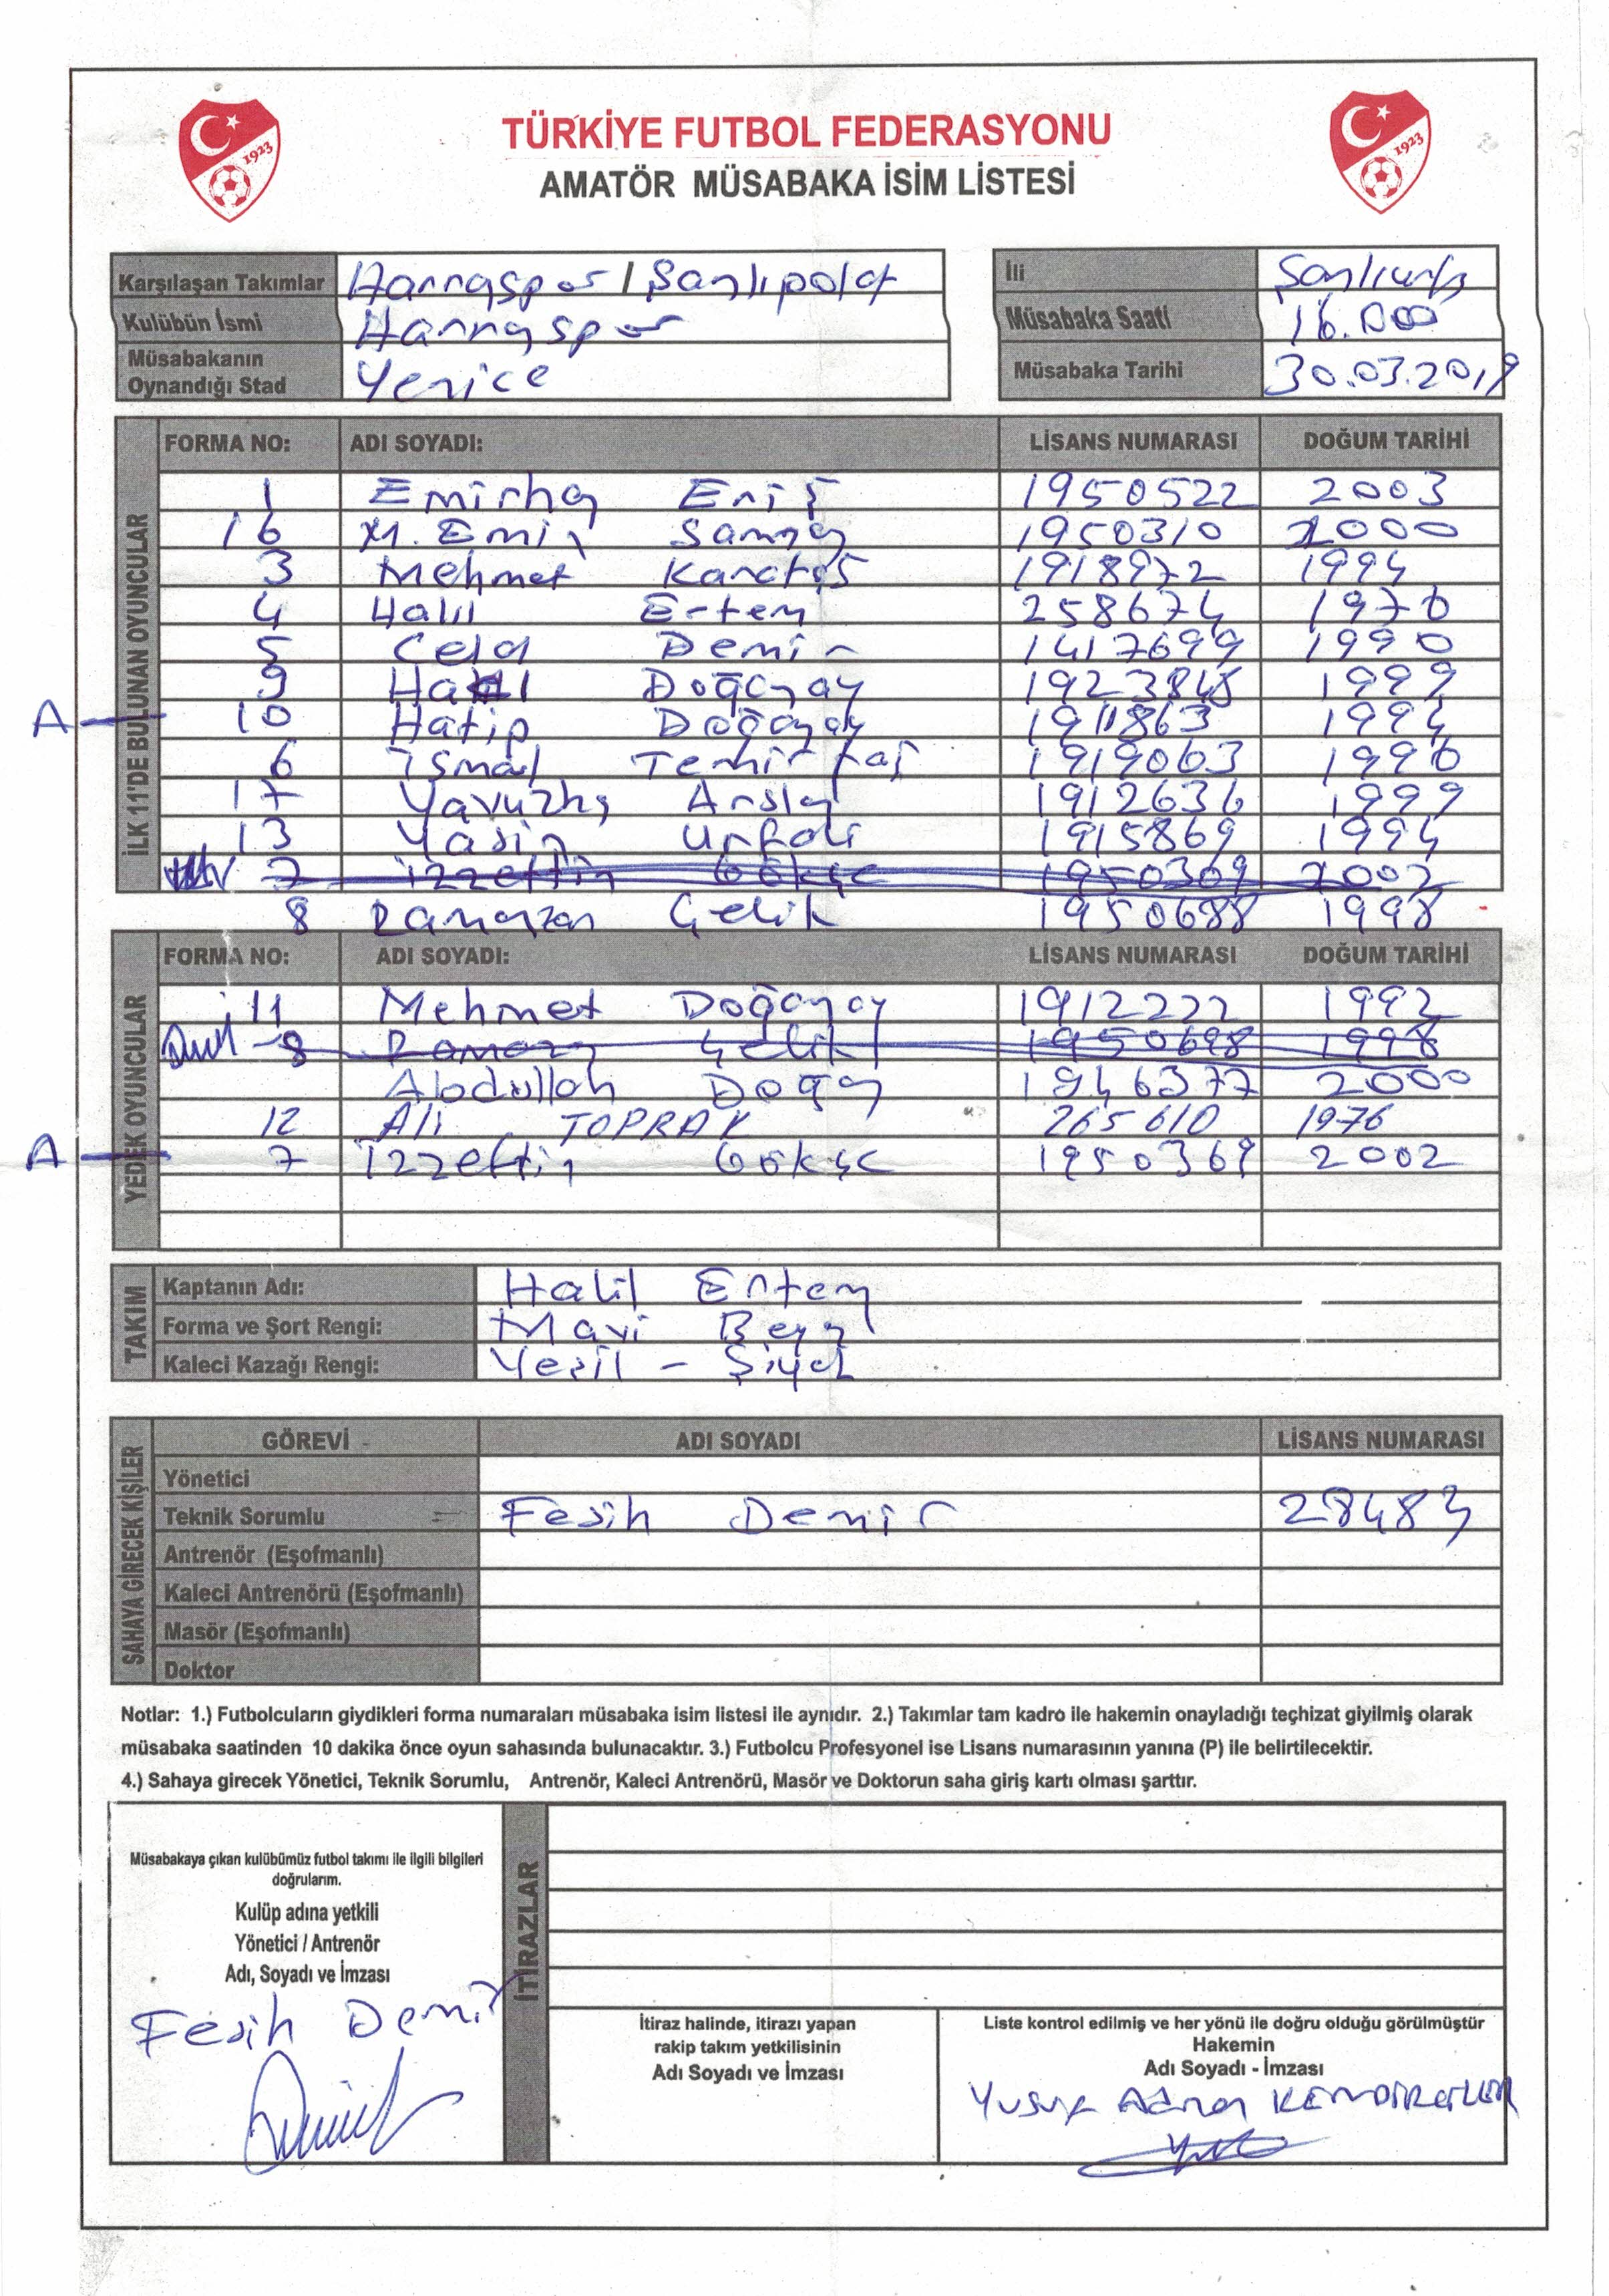 1923
1923
TÜRKİYE FUTBOL FEDERASYONU
AMATÖR MÜSABAKA İSİM LİSTESİ
Karşılaşan Takımlar Harranspor / Şanlıpolat
Kulübün İsmi Harranspor
Müsabakanın Oynandığı Stad Yenice
İli Şanlıurfa
Müsabaka Saati 16.00
Müsabaka Tarihi 30.03.2019
İLK 11'DE BULUNAN OYUNCULAR
FORMA NO: ADI SOYADI: LİSANS NUMARASI DOĞUM TARİHİ
1 Emirhan Eriş 1950522 2003
16 M. Emin 1950310 2000
3 Mehmet Karataş 1918972 1994
4 Halil Ertem 258674 1970
5 Celal Demir 1417699 1990
9 Halil Doğanay 1923848 1999
A 10 Hatip Doğanay 1911863 1994
6 İsmail Temirtaş 1919063 1996
17 Yavuzhan Arslan 1912636 1999
13 Yasin Urfalı 1915869 1994
7 İzzettin Gökçe 1950369 2002
8 Ramazan Çelik 1950688 1998
YEDEK OYUNCULAR
FORMA NO: ADI SOYADI: LİSANS NUMARASI DOĞUM TARİHİ
11 Mehmet Doğanay 1912222 1992
8 Ramazan Çelik 1950698 1998
Abdullah Doğan 1946377 2000
12 Ali TOPRAK 265610 1976
A 7 İzzettin Gökçe 1950369 2002
TAKIM
Kaptanın Adı: Halil Ertem
Forma ve Şort Rengi: Mavi Beyaz
Kaleci Kazağı Rengi: Yeşil - Siyah
SAHAYA GİRECEK KİŞİLER
GÖREVİ ADI SOYADI LİSANS NUMARASI
Yönetici
Teknik Sorumlu Fesih Demir 28483
Antrenör (Eşofmanlı)
Kaleci Antrenörü (Eşofmanlı)
Masör (Eşofmanlı)
Doktor
Notlar: 1.) Futbolcuların giydikleri forma numaraları müsabaka isim listesi ile aynıdır. 2.) Takımlar tam kadro ile hakemin onayladığı teçhizat giyilmiş olarak
müsabaka saatinden 10 dakika önce oyun sahasında bulunacaktır. 3.) Futbolcu Profesyonel ise Lisans numarasının yanına (P) ile belirtilecektir.
4.) Sahaya girecek Yönetici, Teknik Sorumlu, Antrenör, Kaleci Antrenörü, Masör ve Doktorun saha giriş kartı olması şarttır.
Müsabakaya çıkan kulübümüz futbol takımı ile ilgili bilgileri
doğrularım.
Kulüp adına yetkili
Yönetici / Antrenör
Adı, Soyadı ve İmzası
Fesih Demir
İTİRAZLAR
İtiraz halinde, itirazı yapan
rakip takım yetkilisinin
Adı Soyadı ve İmzası
Liste kontrol edilmiş ve her yönü ile doğru olduğu görülmüştür
Hakemin
Adı Soyadı - İmzası
Yusuf Adnan